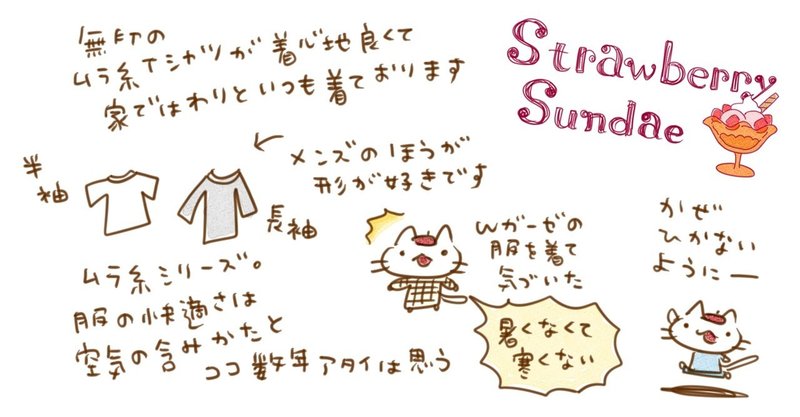 無印の
ムラ糸Tシャツが着心地良くて
家ではわりといつも着ております
Strawberry
Sundae
半袖
長袖
メンズのほうが
形が好きです
ムラ糸シリーズ。
服の快適さは
空気の含みかたと
ココ数年アタイは思う
Wガーゼの
服を着て
気づいた
暑くなくて
寒くない
かぜ
ひかない
ようにー